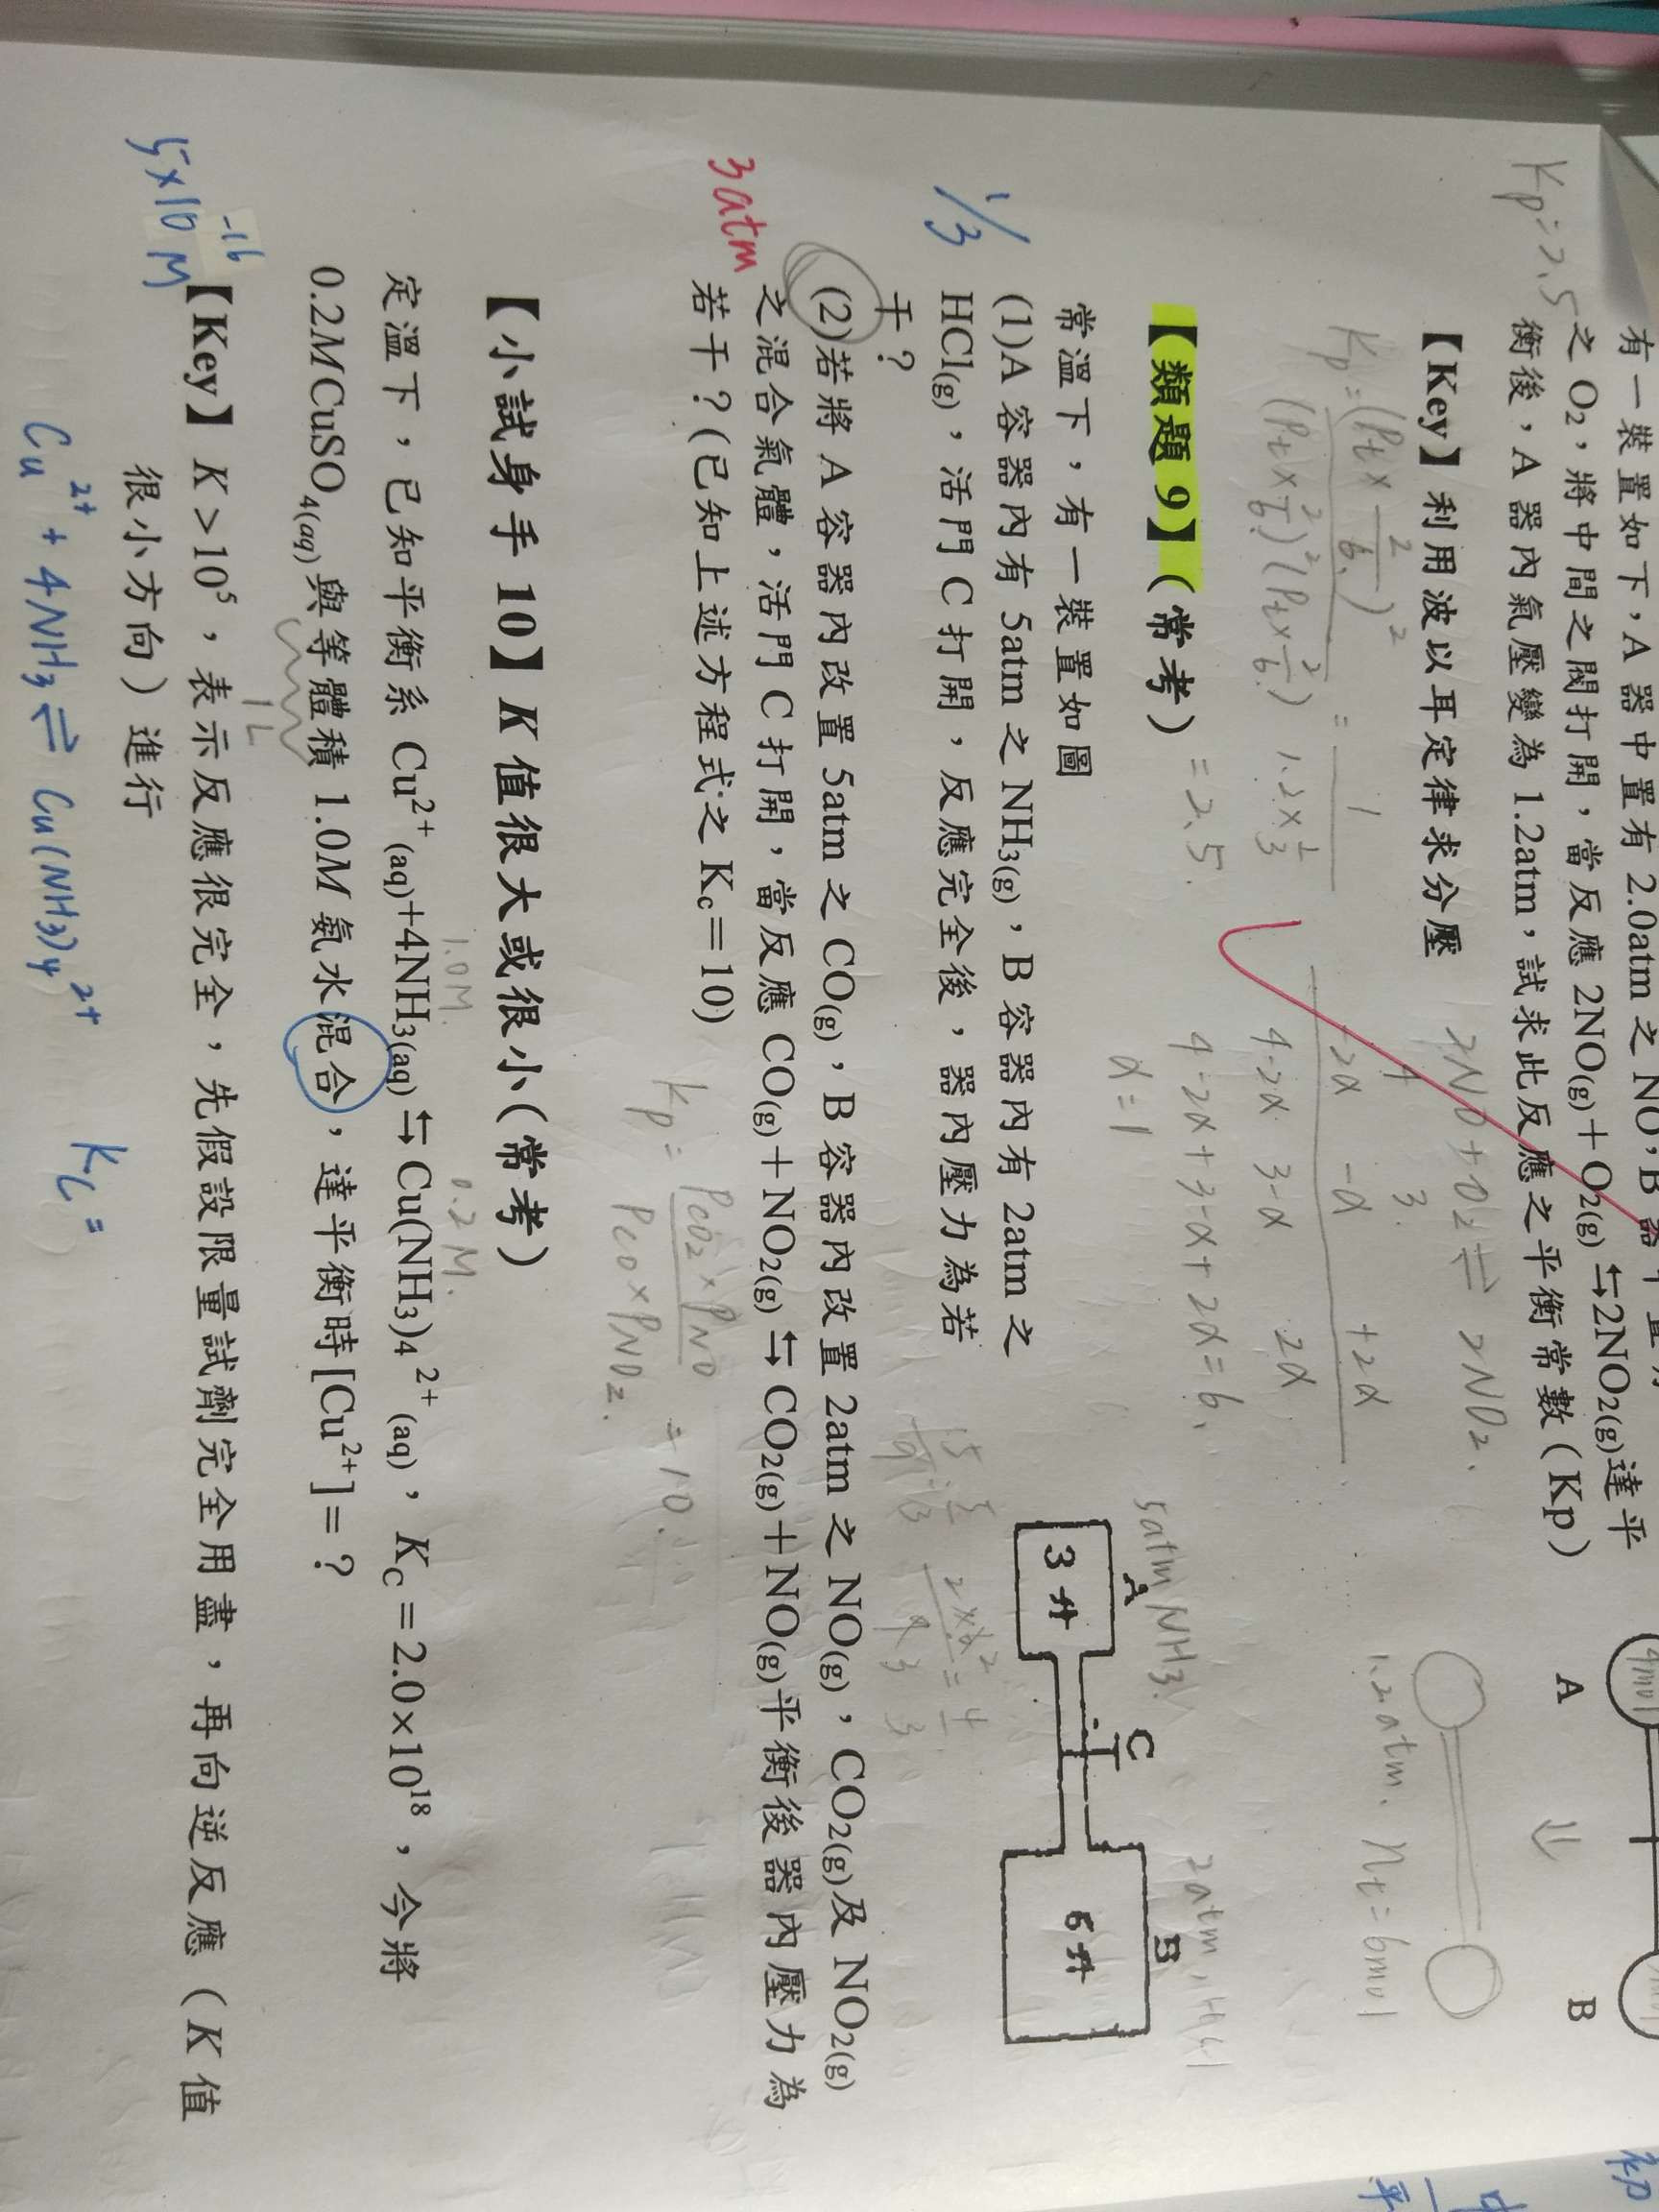 有一裝置如下，A 器中置有 2.0atm 之 NO，B 器中置有
之 O₂，將中間之閥打開，當反應 2NO(g)＋O₂(g)⇆2NO₂(g)達平
衡後，A 器內氣壓變為 1.2atm，試求此反應之平衡常數(Kp)
Kp=2.5
A B
【Key】利用波以耳定律求分壓
2NO+O₂⇌2NO₂
4 3
-2α -α +2α
4-2α 3-α 2α
4-2α+3-α+2α=6
α=1
=2.5
1.2atm. nt=6mol
【類題 9】(常考)
常溫下，有一裝置如圖
(1)A 容器內有 5atm 之 NH₃(g)，B 容器內有 2atm 之
HCl(g)，活門 C 打開，反應完全後，器內壓力為若
干？
1/3
5atm NH₃
2atm HCl
A C B
3升 6升
(2)若將 A 容器內改置 5atm 之 CO(g)，B 容器內改置 2atm 之 NO(g)，CO₂(g)及 NO₂(g)
之混合氣體，活門 C 打開，當反應 CO(g)＋NO₂(g)⇆CO₂(g)＋NO(g)平衡後器內壓力為
若干？(已知上述方程式之 Kc＝10)
3atm
Kp = PCO₂×PNO / PCO×PNO₂ = 10
【小試身手 10】K 值很大或很小(常考)
定溫下，已知平衡系 Cu²⁺(aq)+4NH₃(aq)⇆Cu(NH₃)₄²⁺(aq)，KC＝2.0×10¹⁸，今將
1.0M 0.2M
0.2M CuSO₄(aq)與等體積 1.0M 氨水混合，達平衡時[Cu²⁺]＝？
1L
【Key】K＞10⁵，表示反應很完全，先假設限量試劑完全用盡，再向逆反應（K 值
很小方向）進行
5×10⁻¹⁶ M
Cu²⁺+4NH₃⇌Cu(NH₃)₄²⁺ Kc=